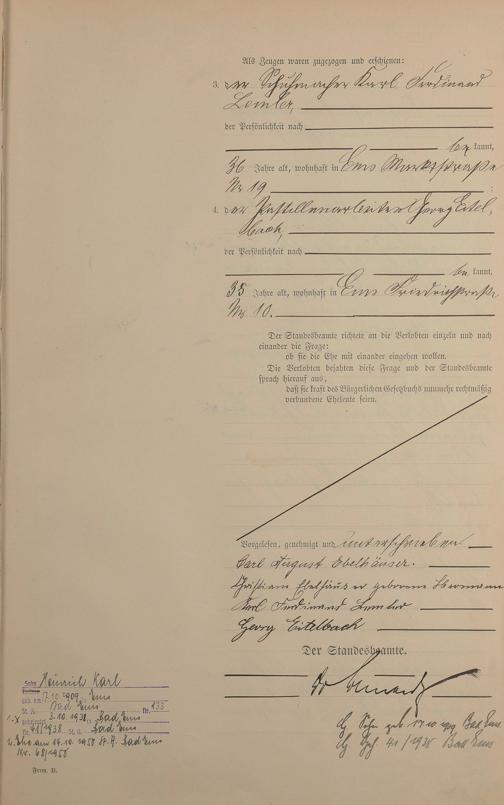 Als Zeugen waren zugezogen und erschienen:
3. der Schuhmacher Karl Ferdinand
Lemler,
der Persönlichkeit nach
be kannt,
36 Jahre alt, wohnhaft in Ems Marktstraße
Nr 19 ;
4. der Pastillenarbeiter Georg Eitel,
bach,
der Persönlichkeit nach
be kannt,
35 Jahre alt, wohnhaft in Ems Friedrichstraße
Nr. 10.
Der Standesbeamte richtete an die Verlobten einzeln und nach
einander die Frage:
ob sie die Ehe mit einander eingehen wollen.
Die Verlobten bejahten diese Frage und der Standesbeamte
sprach hierauf aus,
daß sie kraft des Bürgerlichen Gesetzbuchs nunmehr rechtmäßig
verbundene Eheleute seien.
Vorgelesen, genehmigt und unterschrieben
Carl August Ebelhäuser.
Ebelhäuser geborene
Karl Ferdinand Lemler
Georg Eitelbach
Der Standesbeamte.
Sohn Heinrich Karl
geb. am 17.10.1909, Ems
St. A. Bad Ems Nr. 133
1. X geheiratet 3.10.1938, Bad Ems
Nr. 41/1938 St. A. Bad Ems
2. Ehe am 14.10.1958 St. A. Bad Ems
Nr. 68/1958
Form. B.
Sohn geb 17.10 1909 Bad Ems
41/1938 Bad Ems